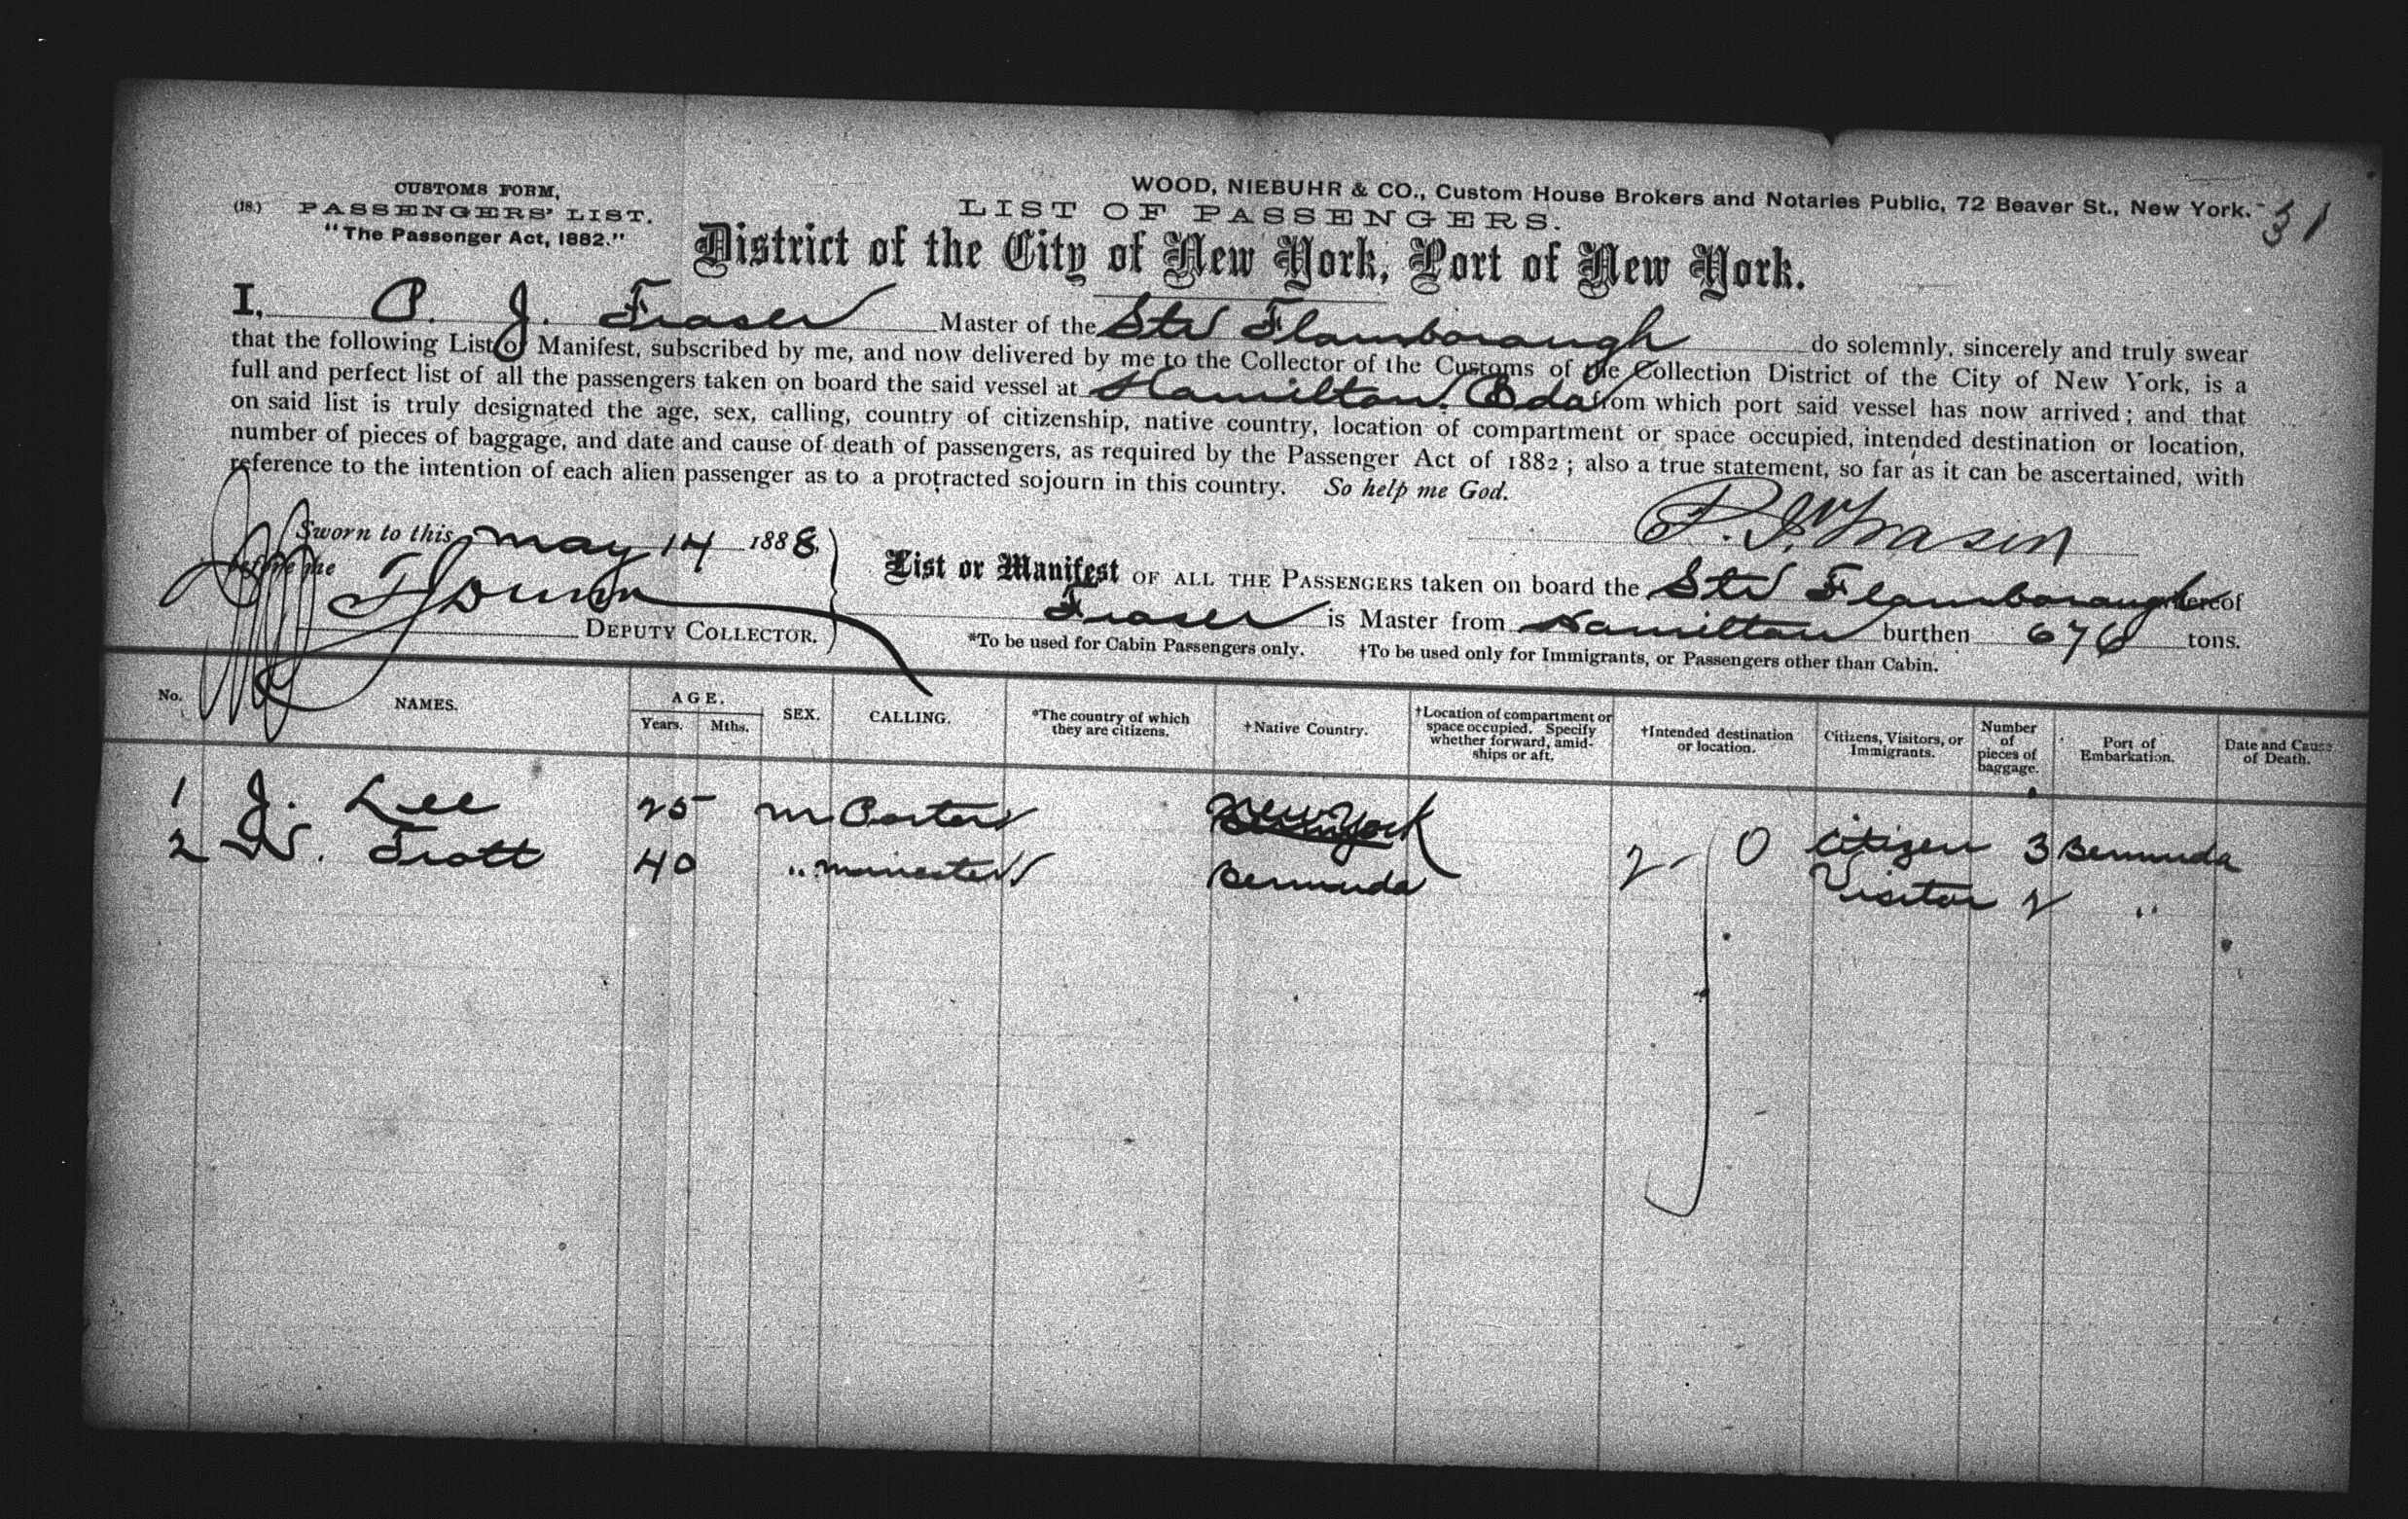 CUSTOMS FORM,
(18.) PASSENGERS' LIST.
"The Passenger Act, 1882."
WOOD, NIEBUHR & CO., Custom House Brokers and Notaries Public, 72 Beaver St., New York.
31
LIST OF PASSENGERS.
District of the City of New York, Port of New York.
I, P. J. Fraser Master of the Str Flamborough do solemnly, sincerely and truly swear
that the following List or Manifest, subscribed by me, and now delivered by me to the Collector of the Customs of the Collection District of the City of New York, is a
full and perfect list of all the passengers taken on board the said vessel at Hamilton. Bda from which port said vessel has now arrived; and that
on said list is truly designated the age, sex, calling, country of citizenship, native country, location of compartment or space occupied, intended destination or location,
number of pieces of baggage, and date and cause of death of passengers, as required by the Passenger Act of 1882; also a true statement, so far as it can be ascertained, with
reference to the intention of each alien passenger as to a protracted sojourn in this country. So help me God.
P. J. Fraser
Sworn to this May 14 1888.
before me
DEPUTY COLLECTOR.
List or Manifest OF ALL THE PASSENGERS taken on board the Str Flamborough whereof
Fraser is Master from Hamilton burthen 676 tons.
*To be used for Cabin Passengers only. †To be used only for Immigrants, or Passengers other than Cabin.
No. NAMES. AGE. Years. Mths. SEX. CALLING. *The country of which they are citizens. †Native Country. †Location of compartment or space occupied. Specify whether forward, amidships or aft. †Intended destination or location. Citizens, Visitors, or Immigrants. Number of pieces of baggage. Port of Embarkation. Date and Cause of Death.
1 J. Lee 25 m Porter New York Citizen 3 Bermuda
2 W. Trott 40 " minister Bermuda 2 - 0 Visitor 2 "